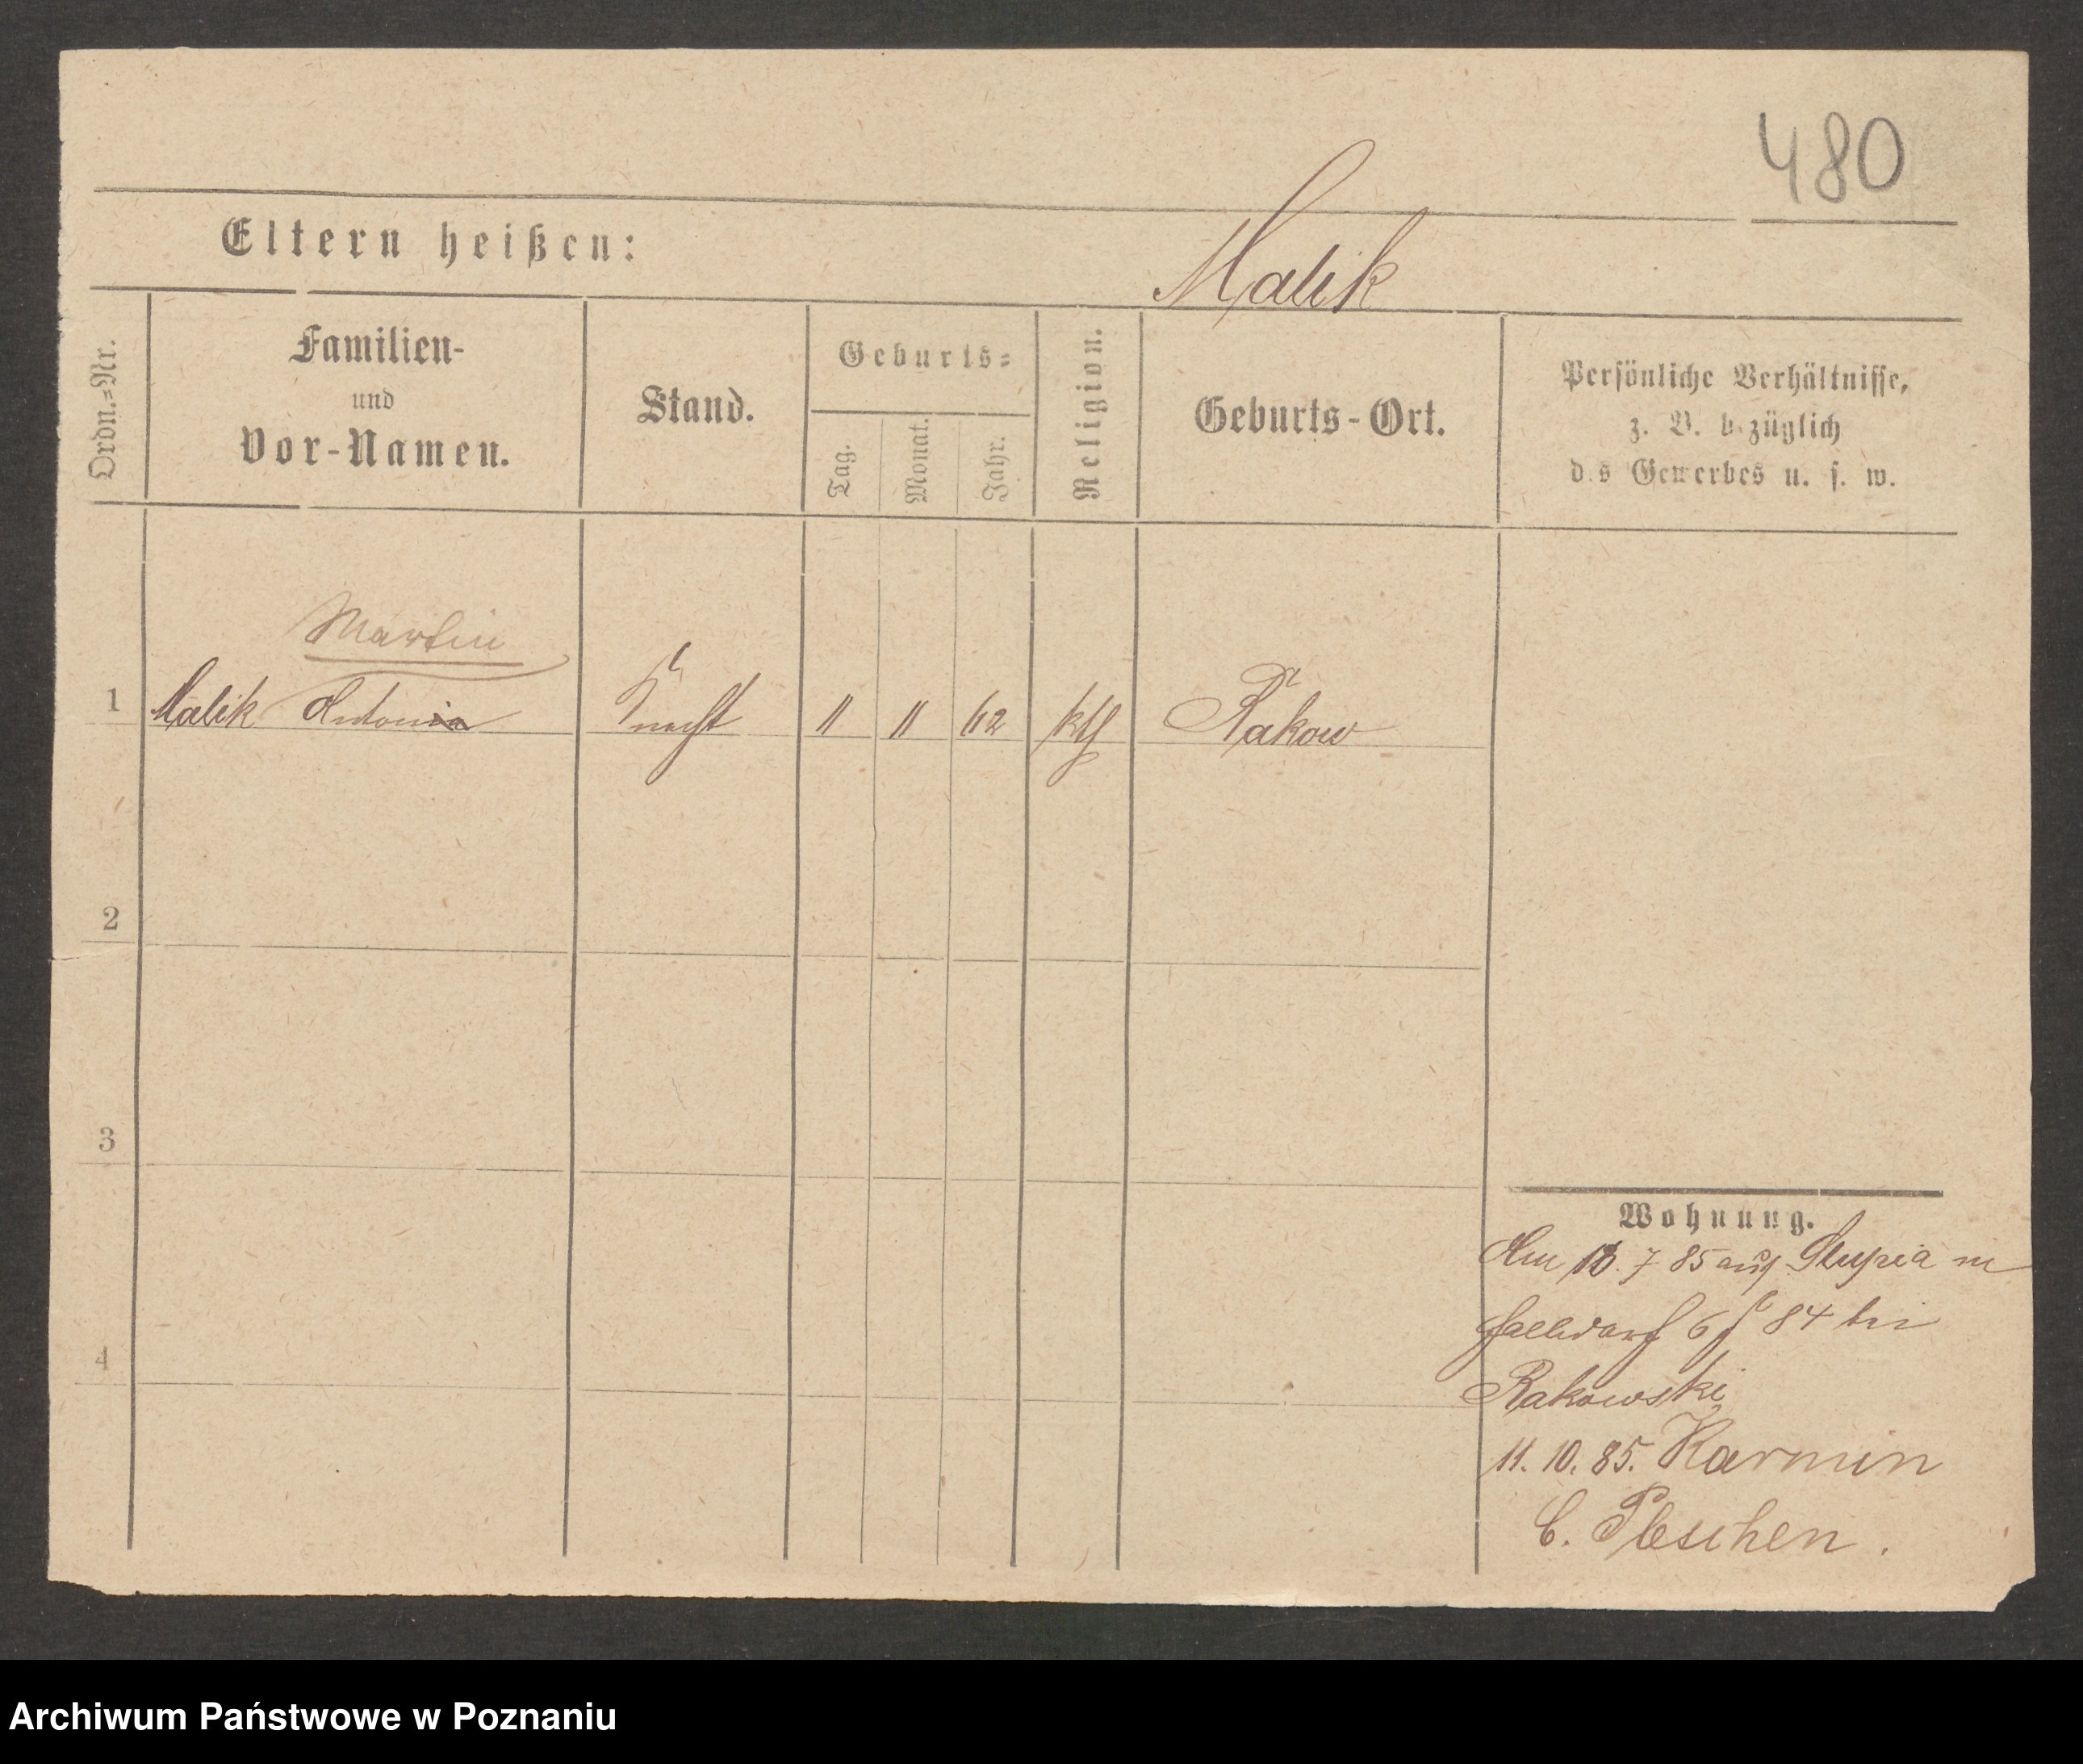 480
Eltern heißen:
Malik
Ordn.=Nr.
Familien-
und
Vor-Namen.
Stand.
Geburts=
Tag.
Monat.
Jahr.
Religion.
Geburts-Ort.
Persönliche Verhältnisse,
z. B. bezüglich
des Gewerbes u. s. w.
Martin
1 Malik Antonia Knecht 11 11 62 kth Rakow
2
3
4
Wohnung.
Am 10. 7 85 aus Slupia in
84 bei
Rakowski
11. 10. 85. Karmin
C. Pleschen.
Archiwum Państwowe w Poznaniu